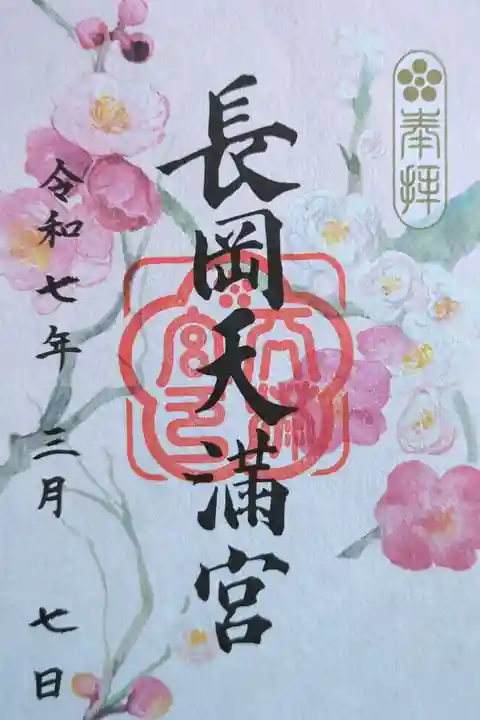 奉拝
長岡天満宮
令和七年 三月 七日